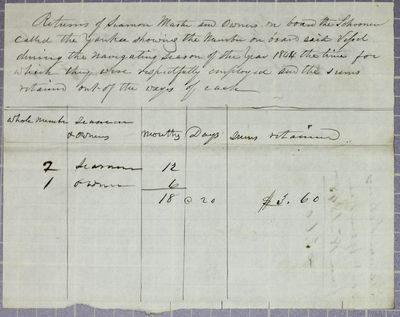 Returns of Seamen Master and Owners on board the Schooner
called the Yankee showing the Number on board said Vessel
during the navigating season of the year 1844 the time for
which they were respectfully employed and the sums
retained out of the wages of each
Whole Number Seamen & owners Months Days sums retained
2 Seamen 12
1 owner 6
18 @ 20 $3.60